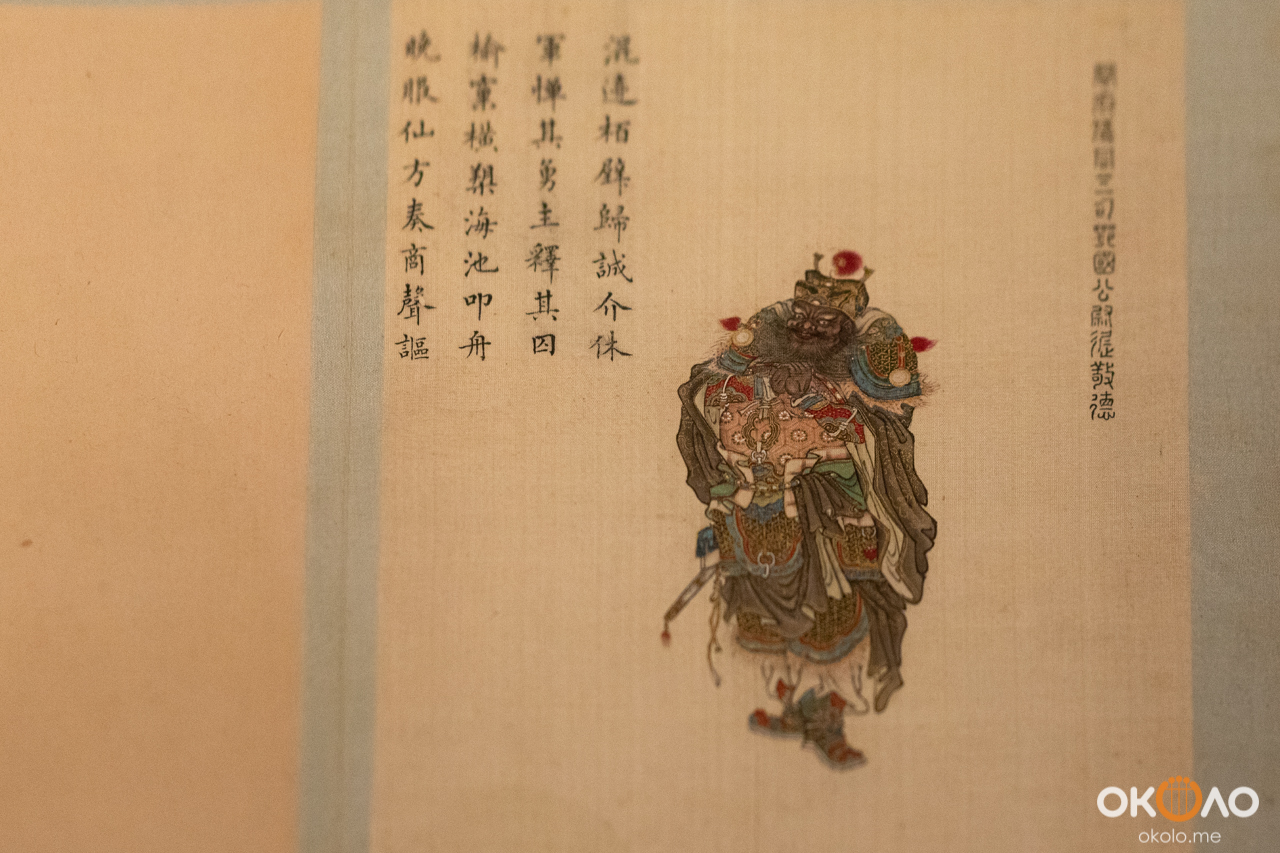 開府儀同三司鄂國公尉遲敬德
混邊栢壁歸誠介休
軍憚其勇主釋其囚
榆窠橫槊海池叩舟
晚服仙方奏商聲謳
ОКОЛО
okolo.me